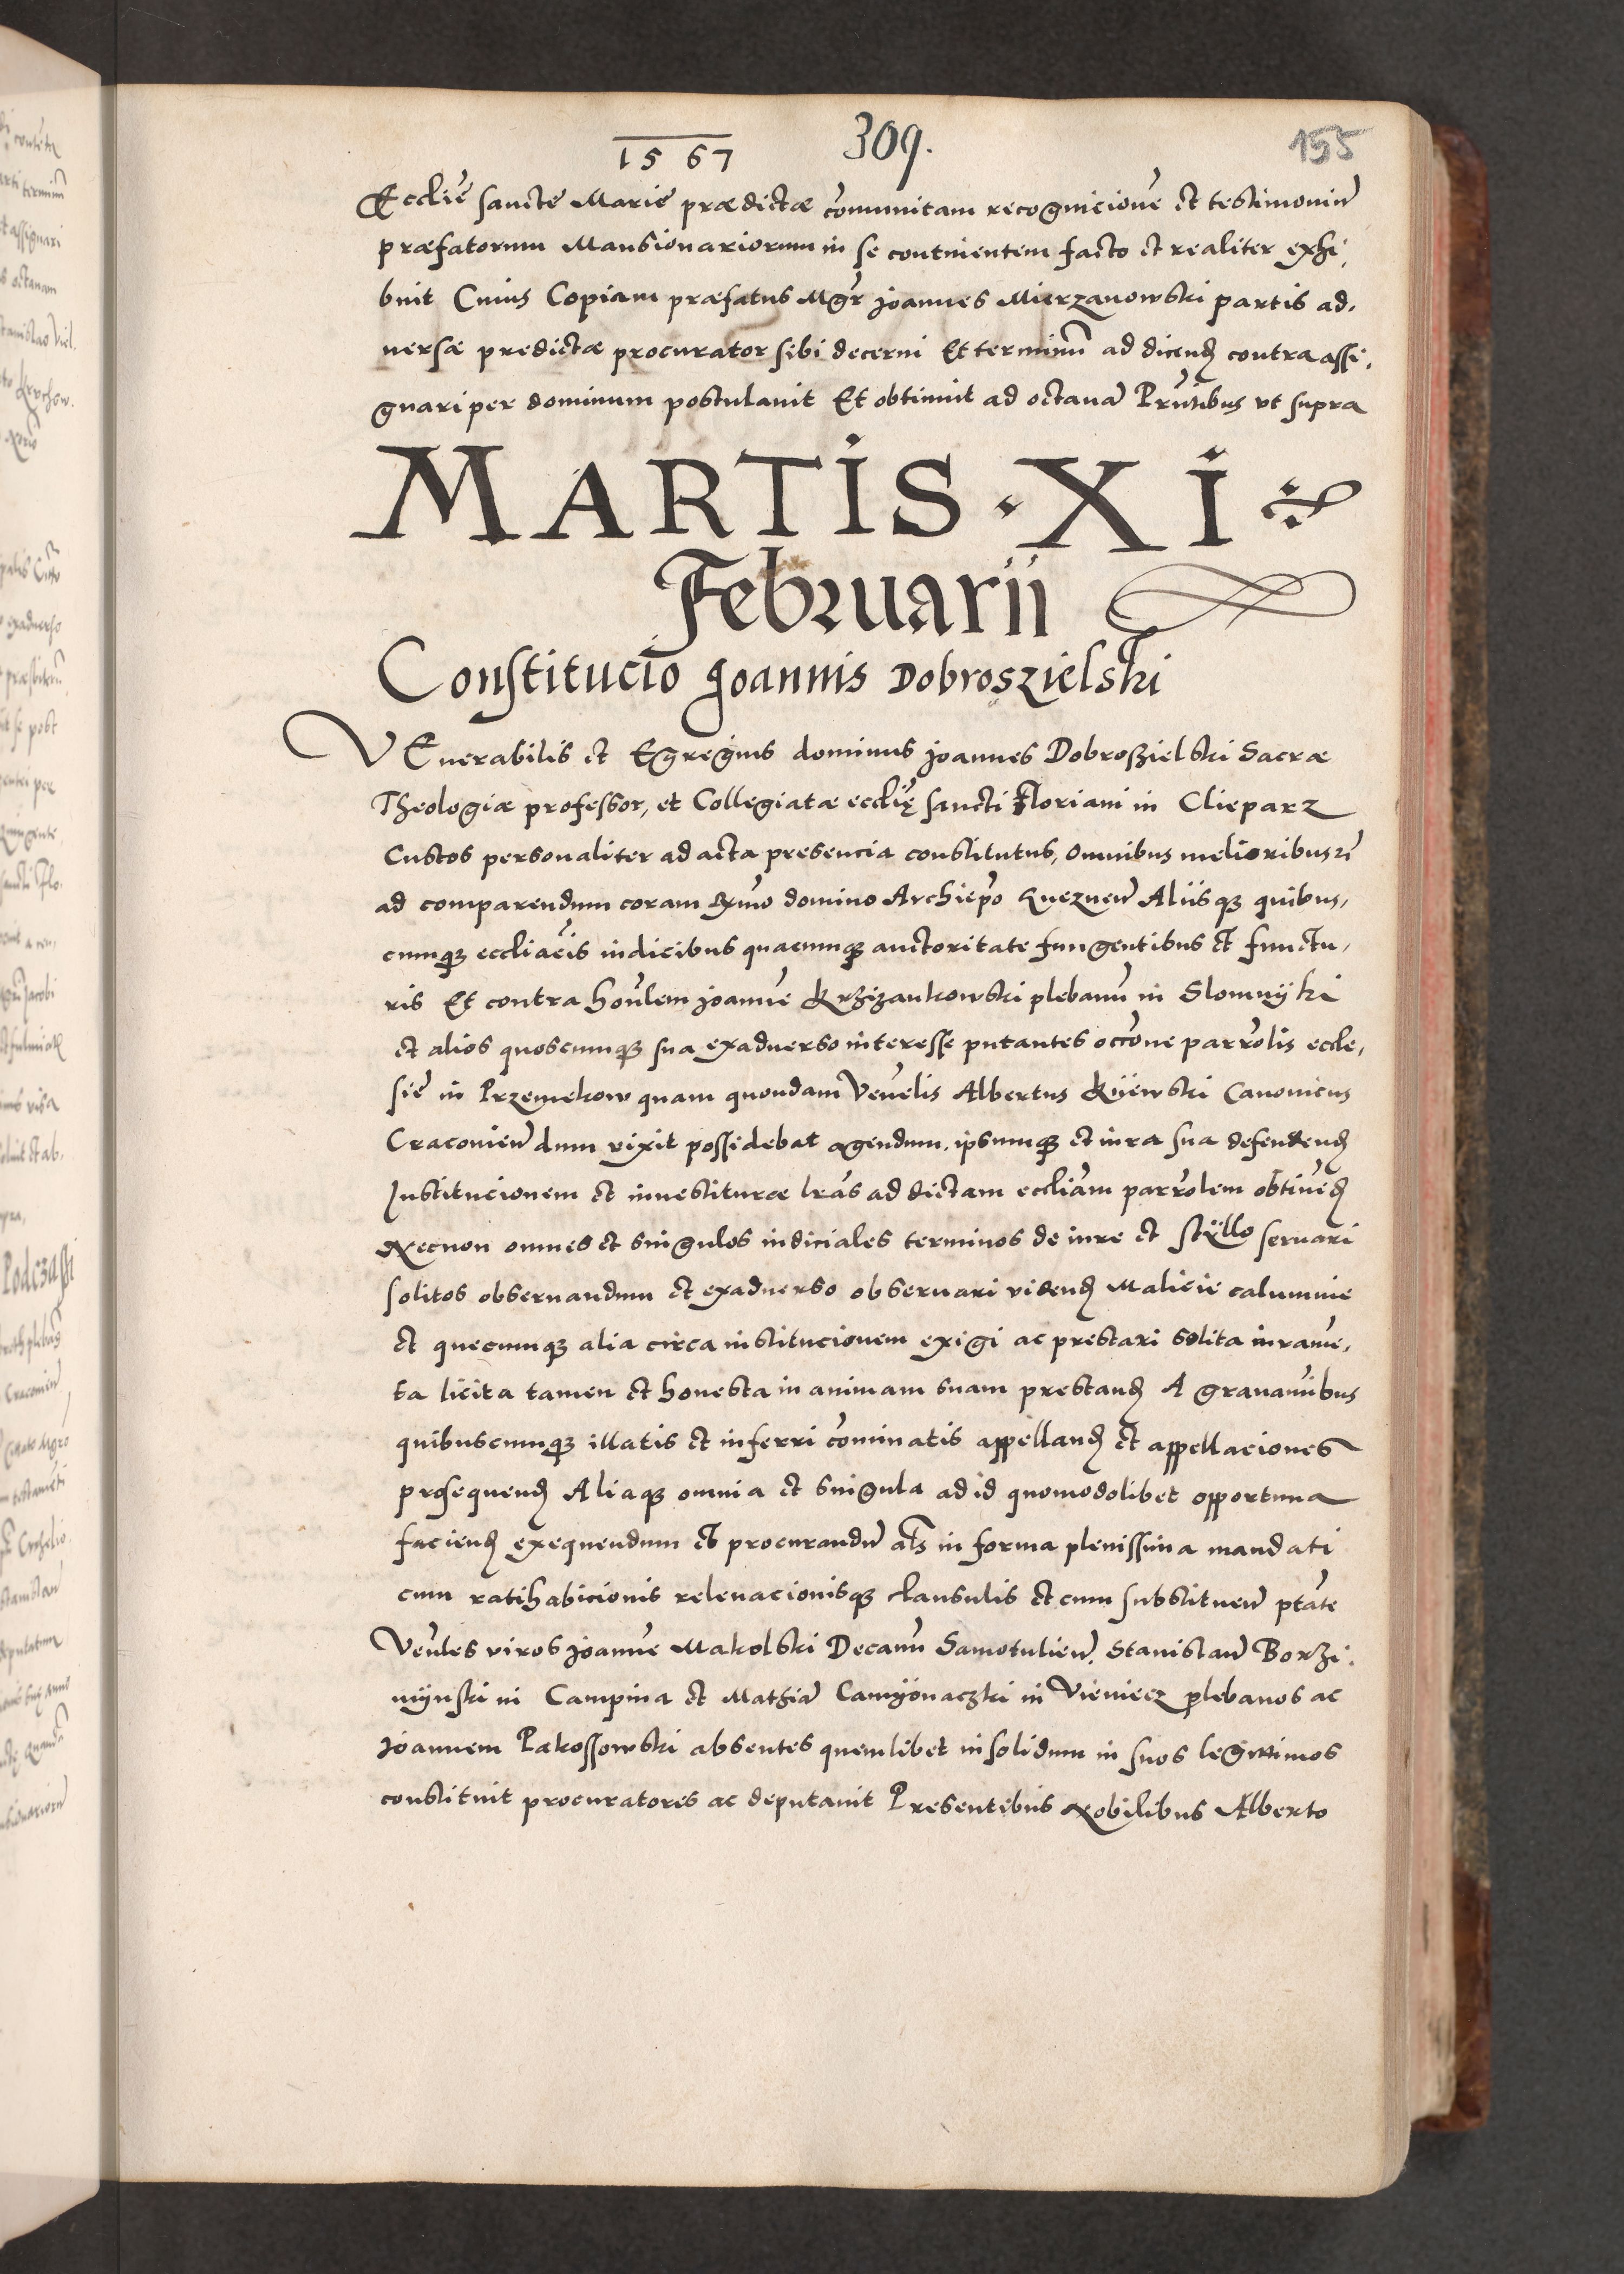 1567 309. 155
Eccliẽ sancte Marie prædictæ cõmunitam recognicionẽ et testimoniũ
præfatorum Mansionariorum in se continentem facto et realiter exhi,
buit Cuius Copiam præfatus Mgr̃ Joannes Mierzanowski partis ad,
uersæ predictæ procurator sibi decerni Et terminũ ad dicend̃ contra assi,
gnari per dominum postulauit Et obtinuit ad octauã Prñtibus vt supra
MARTIS · XI
Februarii
Constitucio Joannis Dobroszielski
VEnerabilis et Egregius dominus Joannes Dobroszielski Sacræ
Theologiæ professor, et Collegiatæ ecclię̃ sancti Floriani in Clieparz
Custos personaliter ad acta presencia constitutus, omnibus melioribus rĩ
ad comparendum coram Rmo domino Archiepõ Gneznen̄ Aliisq; quibus,
cumq; eccliacĩs iudicibus quacumq; auctoritate fungentibus et functu,
ris Et contra honõlem Joannẽ Krzizankowski plebanũ in Slomnijki
et alios quoscumq; sua exaduerso interesse putantes occõne parrõlis eccle,
sie in Przemekow quam quondam Venẽlis Albertus Kijewski Canonicus
Cracouien̄ dum vixit possidebat agendum. ipsumq; et iura sua defendend̃
Institucionem et inuestituræ lrãs ad dictam eccliãm parrõlem obtinẽd̃
Necnon omnes et singulos iudiciales terminos de iure et stÿllo seruari
solitos obseruandum et exaduerso obseruari videnð Malicie calumnie
et quecumq; alia circa institucionem exigi ac prestari solita iuramẽ,
ta licita tamen et honesta in animam suam prestand̃ A grauamĩbus
quibuscumq; illatis et inferri cõminatis appelland̃ et appellaciones
prosequend̃ Aliaq; omnia et singula ad id quomodolibet opportuna
faciend̃ exequendum et procurandũ als̃ in forma plenissima mandati
cum ratihabicionis releuacionisq; clausulis et cum substituen̄ ptãte
Venẽles viros Joannẽ Makolski Decanũ Samotulien̄. Stanislaũ Borzi,
mÿnski in Campina et Mathiã Camÿonaczki in Vieniecz plebanos ac
Joannem Pakossowski absentes quemlibet insolidum in suos legittimos
constituit procuratores ac deputauit Presentibus Nobilibus Alberto